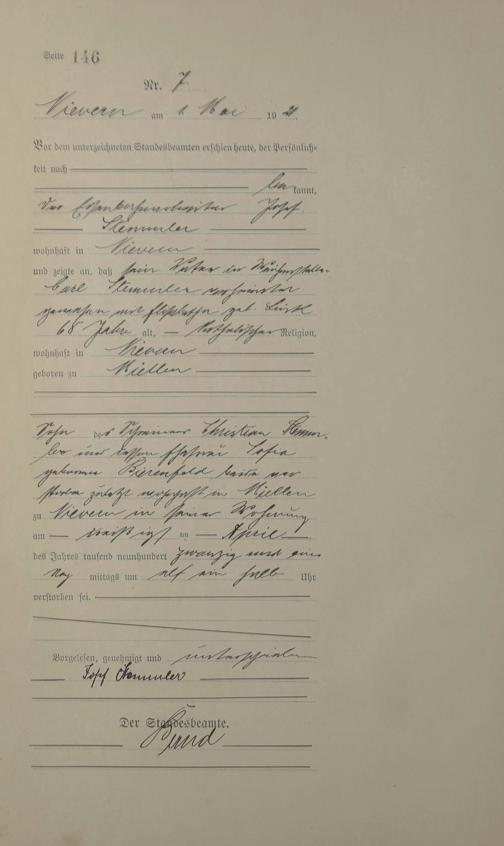 Seite 146
Nr. 7
Nievern am 1. Mai 1921.
Vor dem unterzeichneten Standesbeamten erschien heute, der Persönlich-
keit nach
bekannt,
der Josef
Stemmler
wohnhaft in Nievern
und zeigte an, daß sein Vater der
Carl Stemmler
gewesen mit Elisabetha geb.
68 Jahre alt, katholischer Religion,
wohnhaft in Nievern
geboren zu Miellen
Sohn des Schreiners Christian Stemm-
ler und dessen Ehefrau Sofia
geborene Bierenfeld beide ver-
storben zuletzt wohnhaft in Miellen
zu Nievern in seiner Wohnung
am dreißigsten April
des Jahres tausend neunhundert zwanzig und eins
Nach mittags um elf ein halb Uhr
verstorben sei.
Vorgelesen, genehmigt und unterschrieben
Josef Stemmler
Der Standesbeamte.